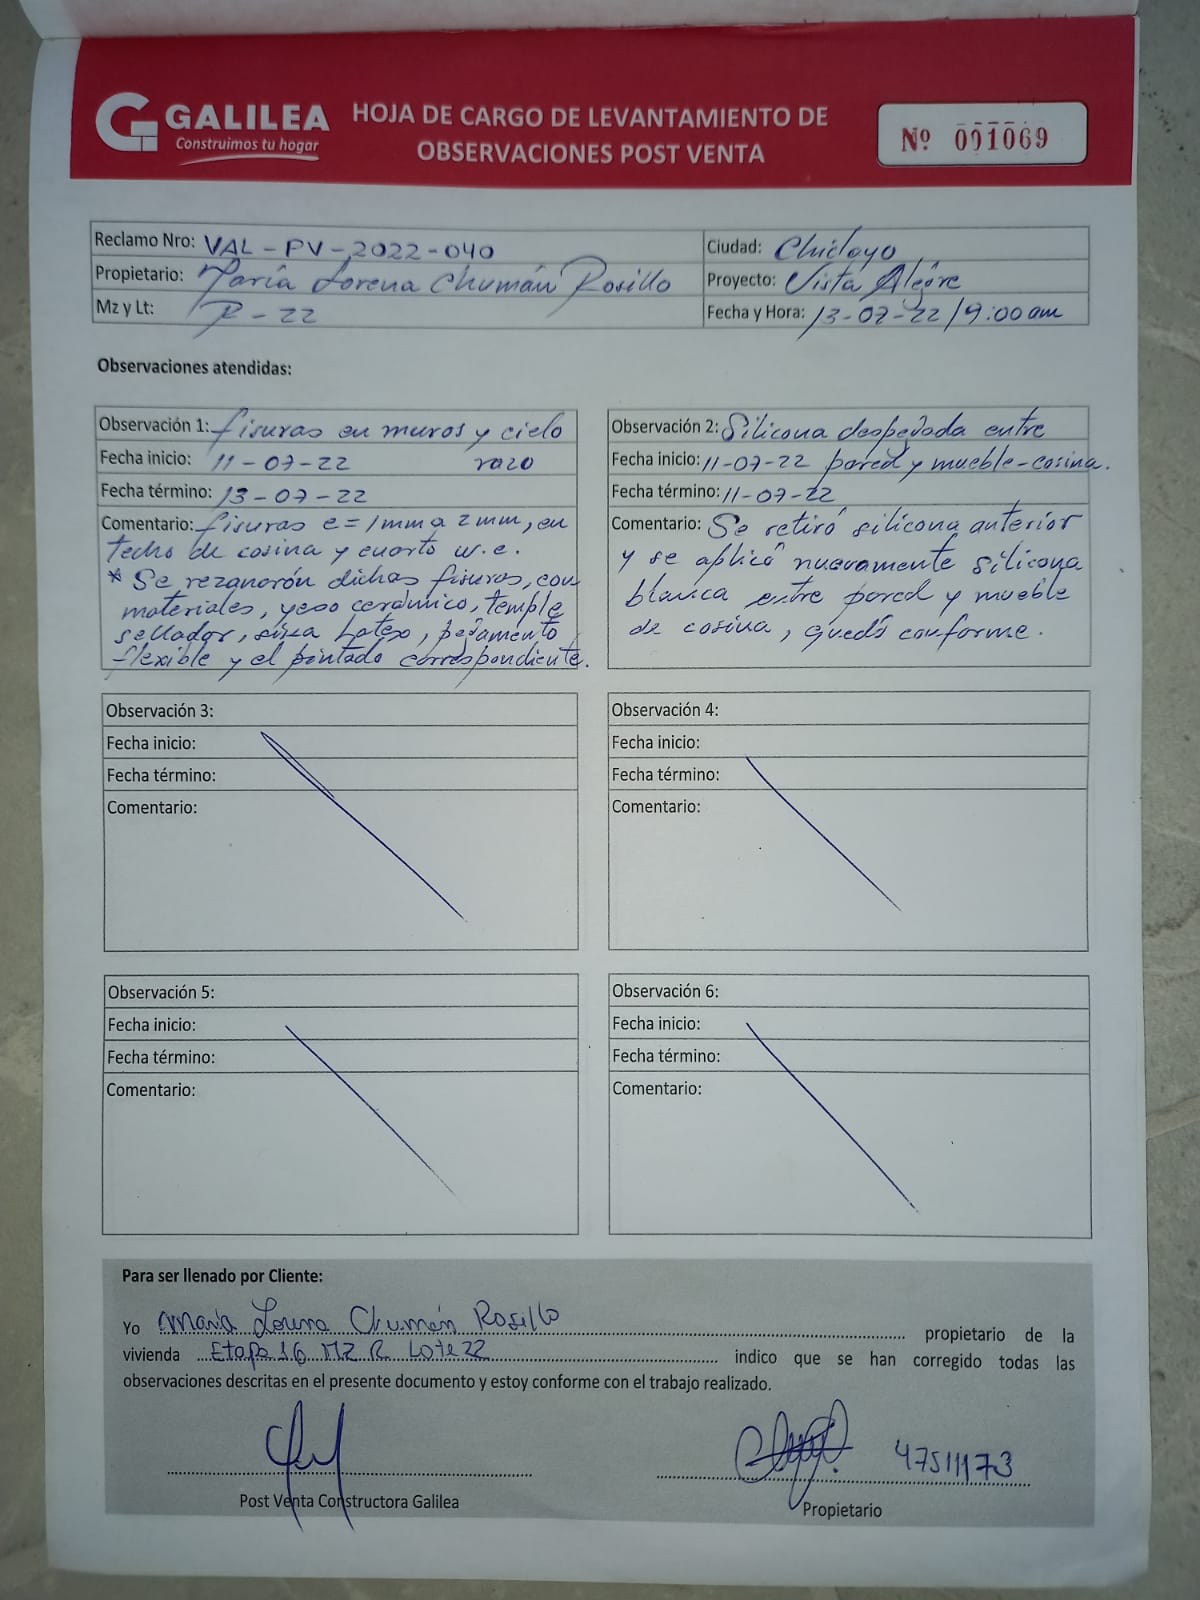 GALILEA
Construimos tu hogar
HOJA DE CARGO DE LEVANTAMIENTO DE
OBSERVACIONES POST VENTA
Nº 001069
Reclamo Nro: VAL-PV-2022-040
Ciudad: Chiclayo
Propietario: María Lorena Chumán Rosillo
Proyecto: Vista Alegre
Mz y Lt: R-22
Fecha y Hora: 13-07-22/9:00am
Observaciones atendidas:
Observación 1: fisuras en muros y cielo
Fecha inicio: 11-07-22 razo
Fecha término: 13-07-22
Comentario: fisuras e=1mm a 2mm, en
techo de cosina y cuarto w.e.
* Se rezanarón dichas fisuras, con
materiales, yeso cerámico, temple
sellador, sika Latex, pegamento
flexible y el pintado correspondiente.
Observación 2: Silicona despegada entre
Fecha inicio: 11-07-22 pared y mueble-cosina.
Fecha término: 11-07-22
Comentario: Se retiró silicona anterior
y se aplicó nuevamente silicona
blanca entre pared y mueble
de cosina, quedó conforme.
Observación 3:
Fecha inicio:
Fecha término:
Comentario:
Observación 4:
Fecha inicio:
Fecha término:
Comentario:
Observación 5:
Fecha inicio:
Fecha término:
Comentario:
Observación 6:
Fecha inicio:
Fecha término:
Comentario:
Para ser llenado por Cliente:
Yo Maria Lorena Chumán Rosillo propietario de la
vivienda Etapa 16 MZ R Lote 22 indico que se han corregido todas las
observaciones descritas en el presente documento y estoy conforme con el trabajo realizado.
47511173
Post Venta Constructora Galilea
Propietario